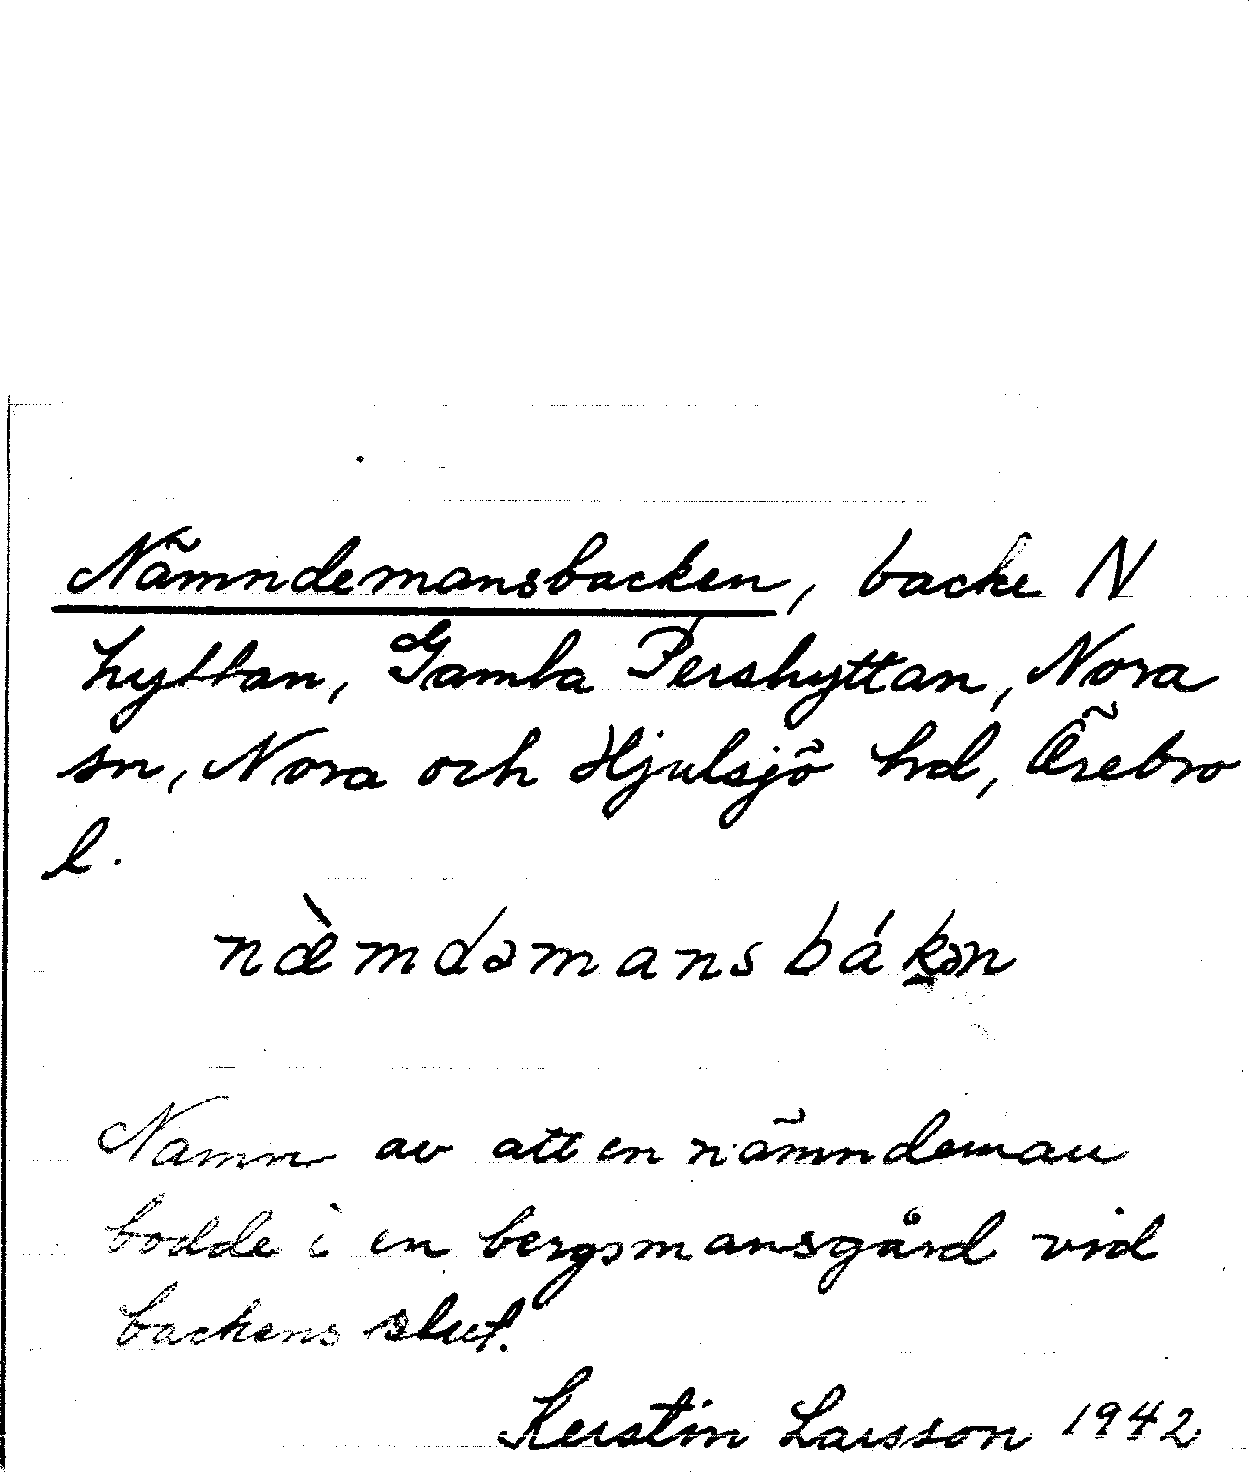 Nämndemansbacken, backe N
hyttan, Gamla Pershyttan, Nora
sn, Nora och Hjulsjö hd, Örebro
l.
næ̀mdəmansbákən
Namn av att en nämndeman
bodde i en bergsmansgård vid
backens slut.
Kerstin Larsson 1942